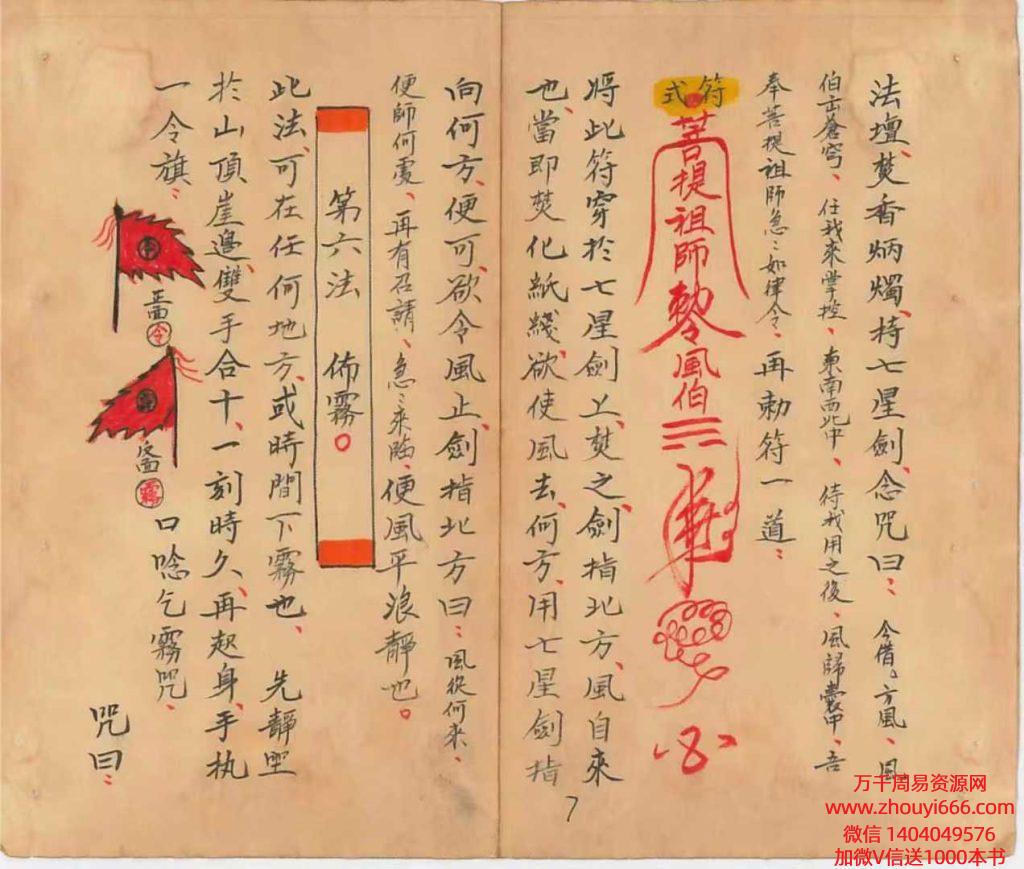 法壇、焚香炳燭、持七星劍、念咒曰：今借。方風、風
伯击蒼穹、任我來掌控、東南西北中、待我用之後、風歸囊中、吾
奉菩提祖師急：如律令、再勅符一道：
符式
菩提祖師勅令風伯
將此符穿於七星劍上、焚之、劍指北方、風自來
也、當即焚化紙錢、欲使風去、何方、用七星劍指
7
向何方、便可、欲令風止、劍指北方曰：風從何來、
便歸何處、再有召請、急：來臨、便風平浪靜也。
第六法 佈霧。
此法、可在任何地方、或時間下霧也、先靜坐
於山頂崖邉、雙手合十、一刻時久、再起身、手执
一令旗：
正面 令
反面 霧
口唸乞霧咒、
咒曰：
万千周易资源网
www.zhouyi666.com
微信 1404049576
加微V信送1000本书